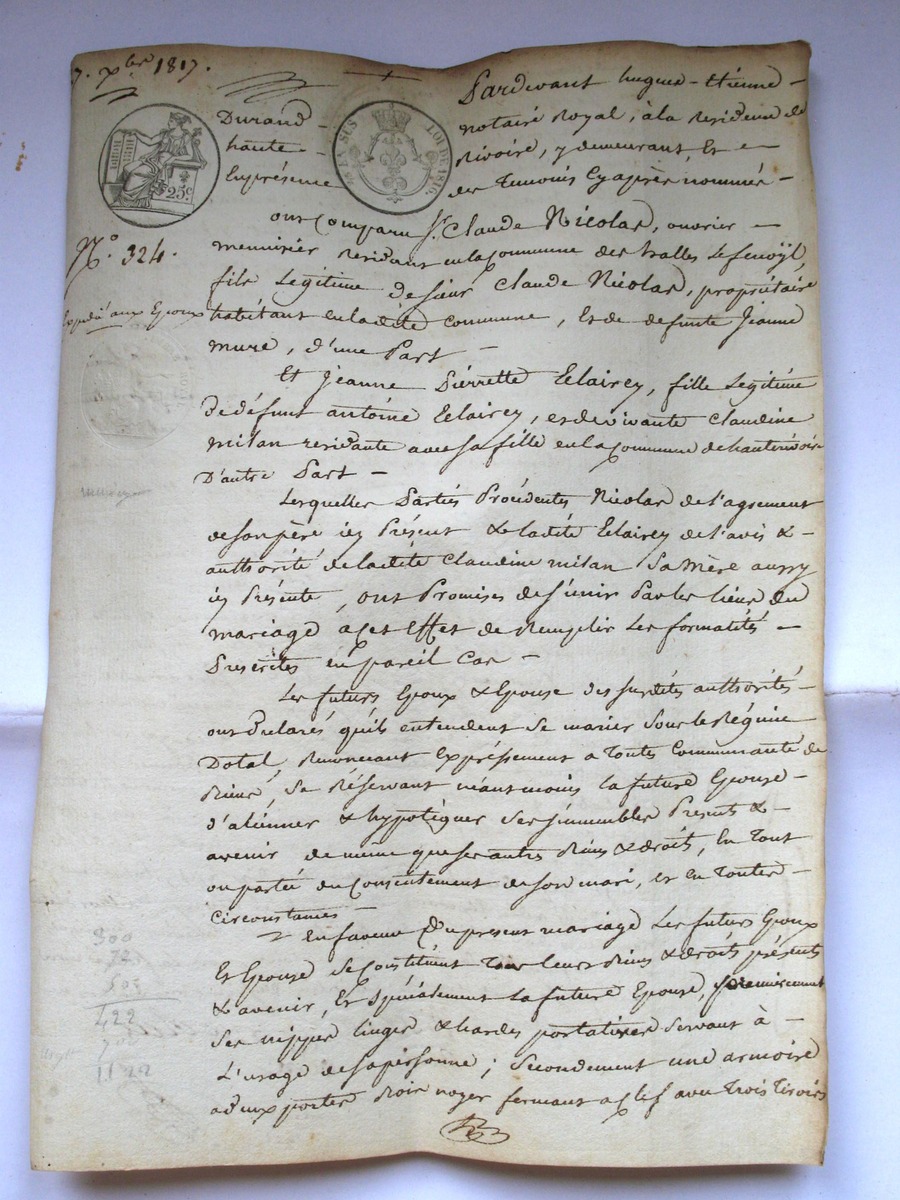 7. xbre 1817.
Pardevant hugues-Etienne
Durand notaire Royal, à la Résidence de
haute Rivoire, y demeurant, Et
En présence des Temoins Cy après nommés
25c.
EN SUS
LOI DE 1816.
No. 324.
Expédié aux Epoux
ont Comparu Sr. Claude Nicolas, ouvrier
menuisier résidant en la Commune des halles Lefenoÿl,
fils Légitime de Sieur Claude Nicolas, propriétaire
habitant en ladite Commune, Et de defunte Jeanne
mure, d'une Part
Et Jeanne Pierrette Eclairey, fille Légitime
De défunt antoine Eclairey, et de vivante Claudine
milan residante avec sa fille en la Commune de hauterivoire
D'autre Part
Lesquelles Parties Procédentes Nicolas de l'agrement
de son père icy Présent & ladite Eclairey de l'avis &
authorité de ladite Claudine milan Sa mère aussy
icy Présente, ont Promises de S'unir Par les liens du
mariage a Cet Effet de Remplir Les formalités
Prescrites en pareil Cas
Les futurs Epoux & Epouse des susdites authorités
ont Déclarés qu'ils entendent Se marier Sous le Régime
Dotal, Renoncant Expréssement a Toutes Communauté de
Biens, Se Réservant néantmoins la future Epouse
d'aliénner & hypotéquer Ses immeubles Presents &
avenir de même que ses autres Biens & droits, En Tout
ou partie du Consentement de son mari, et en Toutes
Circonstances
En faveur Du present mariage Les futurs Epoux
Et Epouse Se Constituent Tous leurs Biens & droits présents
& avenir, Et Spécialement La future Epouse, premierement
Ses nippes linges & hardes portatives servant à
L'usage de sa personne; Secondement une armoire
a deux portes Bois noyer fermant a Clef avec Trois Tiroirs
300
422
1122